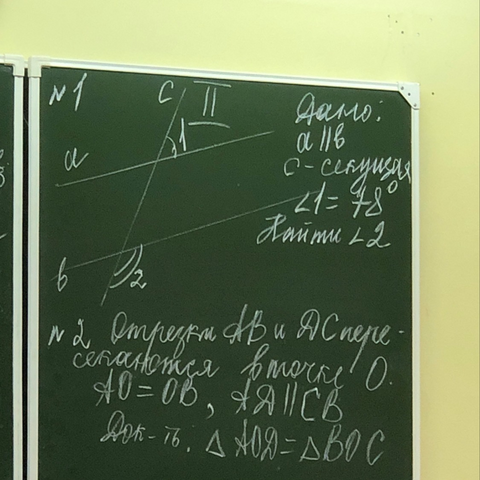 №1
II
c
1
a
b
2
Дано:
a||b
c - секущая
∠1 = 78°
Найти ∠2
№2 Отрезки AB и DC пере-
секаются в точке O.
AO = OB, AD||CB
Док-ть. △AOD = △BOC